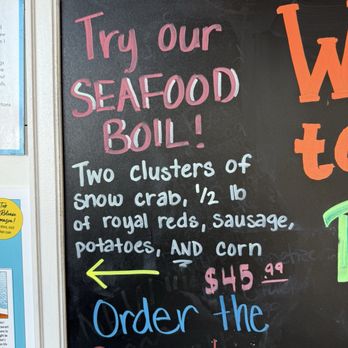 Try our
SEAFOOD
BOIL!
Two clusters of
snow crab, 1/2 lb
of royal reds, sausage,
potatoes, AND corn
$45.99
Order the
W
to